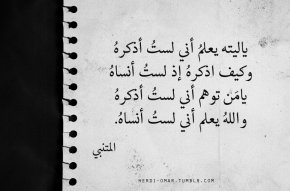 ياليته يعلمُ أني لستُ أذكرهُ
وكيف اذكرهُ إذ لستُ أنساهُ
يامَن توهم أني لستُ أذكرهُ
واللهُ يعلم أني لستُ أنساهُ.
المتنبي
HENDI-OMAR.TUMBLR.COM